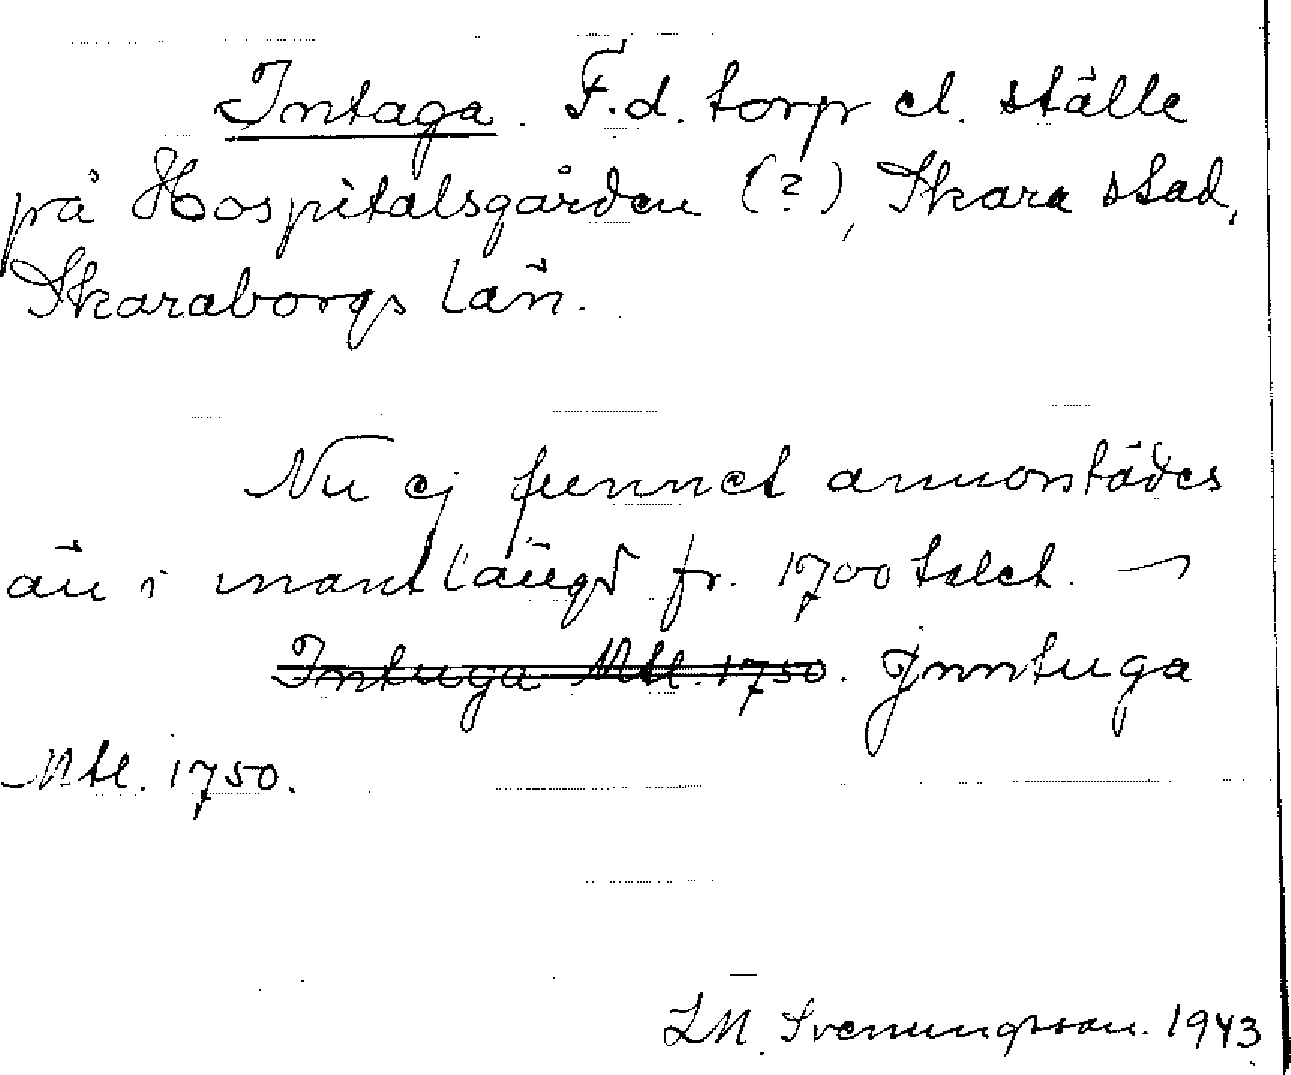 Intaga. F.d. torp el. ställe
på Hospitalsgården (?), Skara stad,
Skaraborgs län.
Nu ej funnet annorstädes
än i mantlängd fr. 1700 talet. –
Intuga Mtl. 1750. Jnntuga
Mtl. 1750.
LM. Svenungsson. 1943